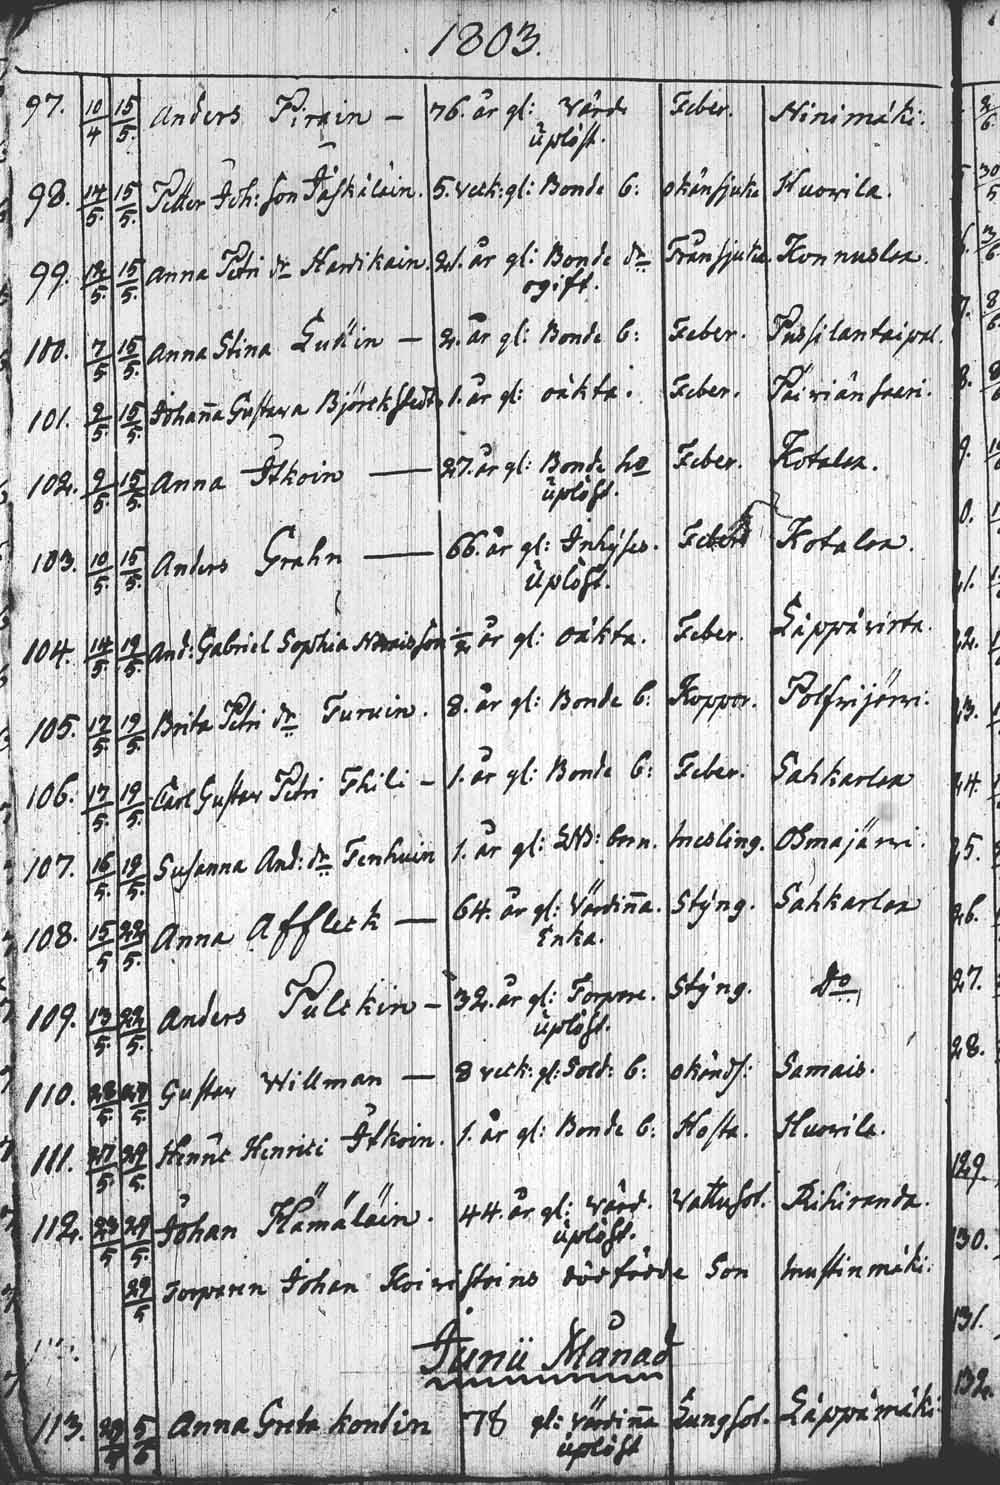 1803.
97. 10/4 15/5. Anders Pirain — 76. år gl: Värd Feber. Ninimäki.
uplöst.
98. 14/5. 15/5. Petter Joh: Son Jäskäläin. 5. veck: gl: Bonde b: okänsjuka Huovila.
99. 12/5. 15/5. Anna Petri dr Hartikain. 21. år gl: Bonde dr Frånsjuka. Konnuslax.
ogift.
100. 7/5 15/5. Anna Stina — 2. år gl: Bonde b: Feber. Pussilantaipal.
101. 9/5. 15/5. Johanna Gustava Björckstedt 1. år gl: oäkta. Feber. Päiviänsaari.
102. 9/5. 15/5. Anna Itkoin — 27. år gl: Bonde ho Feber. Kotalax.
uplöst.
103. 10/5. 15/5. Anders Grahn — 66. år gl: Inhyses. Feber Kotalax.
uplöst.
104. 14/5 19/5. And: Gabriel Sophia son 1/2 år gl: oäkta. Feber. Läppävirta.
105. 17/5. 19/5. Brita Petri dr Turuin. 8. år gl: Bonde b: Koppor. Polfvijärvi.
106. 17/5. 19/5. Carl Gustav Petri Thili – 1. år gl: Bonde b: Feber. Sahkarlax
107. 16/5. 19/5. Susanna And: dr Tenhuin 1. år gl: barn. Messling. Osmajärvi.
108. 15/5 22/5. Anna Affleck — 64. år gl: Värdinna. Styng. Sahkarlax
Enka.
109. 13/5. 22/5. Anders Pulckin – 32. år gl: Torpare. Styng. Do
uplöst.
110. 23/5. 27/5. Gustav Willman — 8 veck: gl: Sold: b: okänds: Samais.
111. 27/5. 29/5. Henric Henrici Itkoin. 1. år gl: Bonde b: Hosta. Huovila.
112. 23/5 29/5. Johan Hämäläin. 44. år gl: Värd. Vattusot. Rihiranda.
uplöst.
29/5 Torparen Johan Koivistoins dödfödde Son Mustinmäki.
Junii Månad
113. 29/4 5/6 Anna Greta kontin 78 gl: Värdinna Lungsot. Läppämäki
uplöst